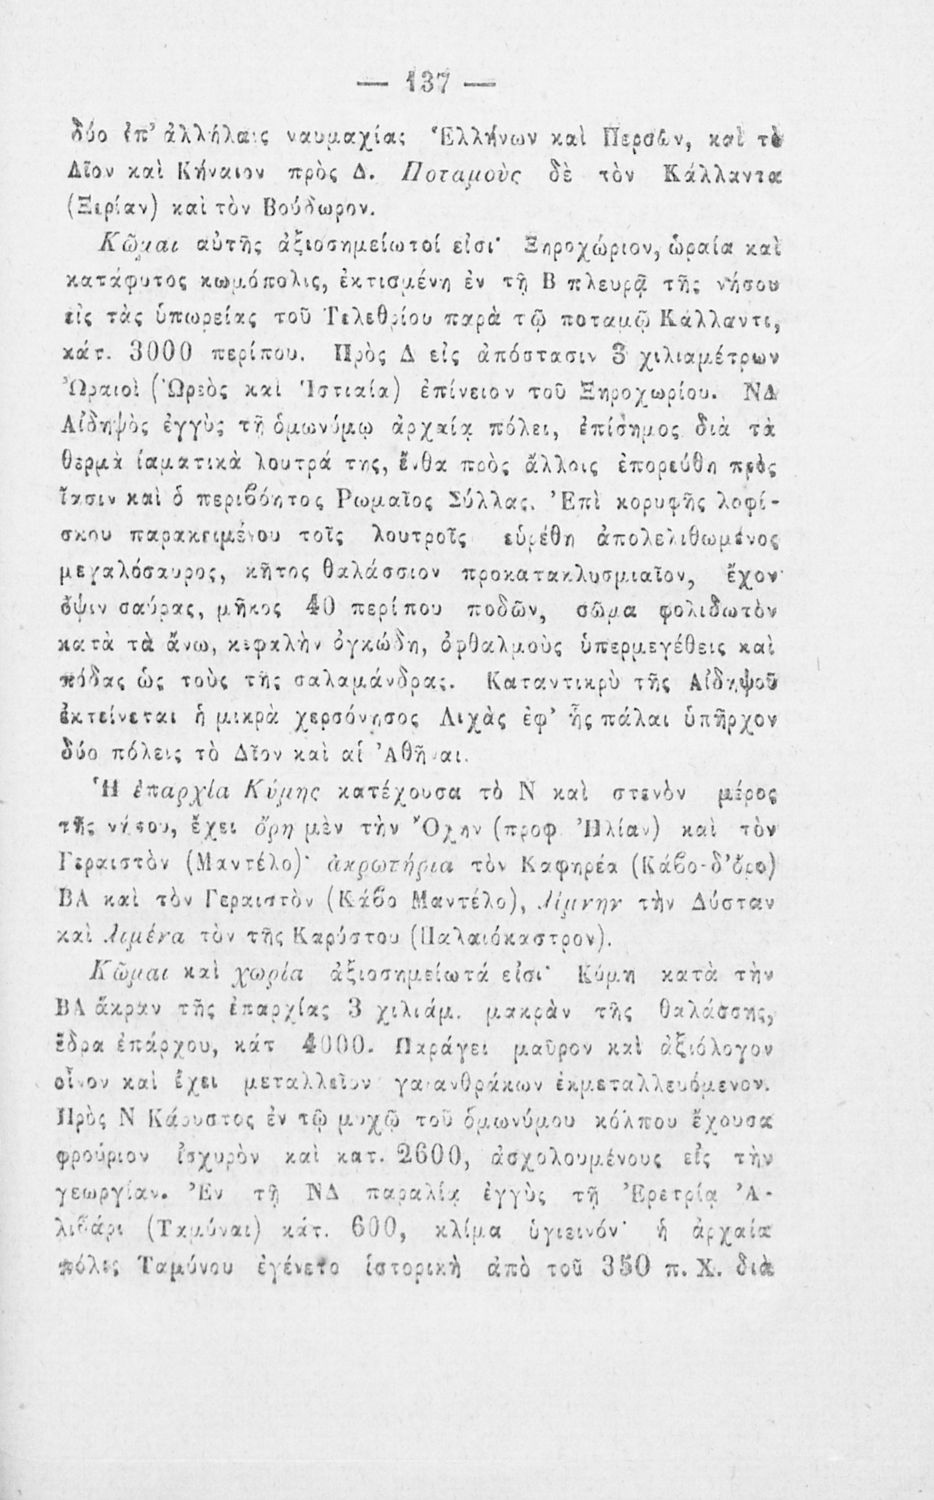 — 137 —
δύο ἐπ’ ἀλλήλαις ναυμαχίας Ἑλλήνων καὶ Περσῶν, καὶ τὸ
Δῖον καὶ Κήναιον πρὸς Δ. Ποταμοὺς δὲ τὸν Κάλλαντα
(Ξιρίαν) καὶ τὸν Βούδωρον.
Κῶμαι αὐτῆς ἀξιοσημείωτοί εἰσι· Ξηροχώριον, ὡραία καὶ
κατάφυτος κωμόπολις, ἐκτισμένη ἐν τῇ Β πλευρᾷ τῆς νήσου
εἰς τὰς ὑπωρείας τοῦ Τελεθρίου παρὰ τῷ ποταμῷ Κάλλαντι,
κάτ. 3000 περίπου. Πρὸς Δ εἰς ἀπόστασιν 3 χιλιαμέτρων
Ὠραιοὶ (Ὠρεὸς καὶ Ἱστιαία) ἐπίνειον τοῦ Ξηροχωρίου. ΝΔ
Αἰδηψὸς ἐγγὺς τῇ ὁμωνύμῳ ἀρχαίᾳ πόλει, ἐπίσημος διὰ τὰ
θερμὰ ἰαματικὰ λουτρά της, ἔνθα πρὸς ἄλλοις ἐπορεύθη πρὸς
ἴασιν καὶ ὁ περιβόητος Ρωμαῖος Σύλλας. Ἐπὶ κορυφῆς λοφί-
σκου παρακειμένου τοῖς λουτροῖς εὑρέθη ἀπολελιθωμένος
μεγαλόσαυρος, κῆτος θαλάσσιον προκατακλυσμιαῖον, ἔχον
ὄψιν σαύρας, μῆκος 40 περίπου ποδῶν, σῶμα φολιδωτὸν
κατὰ τὰ ἄνω, κεφαλὴν ὀγκώδη, ὀφθαλμοὺς ὑπερμεγέθεις καὶ
πόδας ὡς τοὺς τῆς σαλαμάνδρας. Καταντικρὺ τῆς Αἰδηψοῦ
ἐκτείνεται ἡ μικρὰ χερσόνησος Λιχὰς ἐφ’ ἧς πάλαι ὑπῆρχον
δύο πόλεις τὸ Δῖον καὶ αἱ Ἀθῆναι.
Ἡ ἐπαρχία Κύμης κατέχουσα τὸ Ν καὶ στενὸν μέρος
τῆς νήσου, ἔχει ὄρη μὲν τὴν Ὄχην (προφ Ἠλίαν) καὶ τὸν
Γεραιστὸν (Μαντέλο)· ἀκρωτήρια τὸν Καφηρέα (Κάβο-δ’ὄρο)
ΒΑ καὶ τὸν Γεραιστὸν (Κάβο Μαντέλο), λίμνην τὴν Δύσταν
καὶ λιμένα τὸν τῆς Καρύστου (Παλαιόκαστρον).
Κῶμαι καὶ χωρία ἀξιοσημείωτά εἰσι· Κύμη κατὰ τὴν
ΒΑ ἄκραν τῆς ἐπαρχίας 3 χιλιάμ. μακρὰν τῆς θαλάσσης,
ἕδρα ἐπάρχου, κάτ 4000. Παράγει μαῦρον καὶ ἀξιόλογον
οἶνον καὶ ἔχει μεταλλεῖον γαιανθράκων ἐκμεταλλευόμενον.
Πρὸς Ν Κάρυστος ἐν τῷ μυχῷ τοῦ ὁμωνύμου κόλπου ἔχουσα
φρούριον ἰσχυρὸν καὶ κατ. 2600, ἀσχολουμένους εἰς τὴν
γεωργίαν. Ἐν τῇ ΝΔ παραλίᾳ ἐγγὺς τῇ Ἐρετρίᾳ Ἀ-
λιβάρι (Ταμύναι) κάτ. 600, κλίμα ὑγιεινόν· ἡ ἀρχαία
πόλις Ταμύνου ἐγένετο ἱστορικὴ ἀπὸ τοῦ 350 π. Χ. διὰ